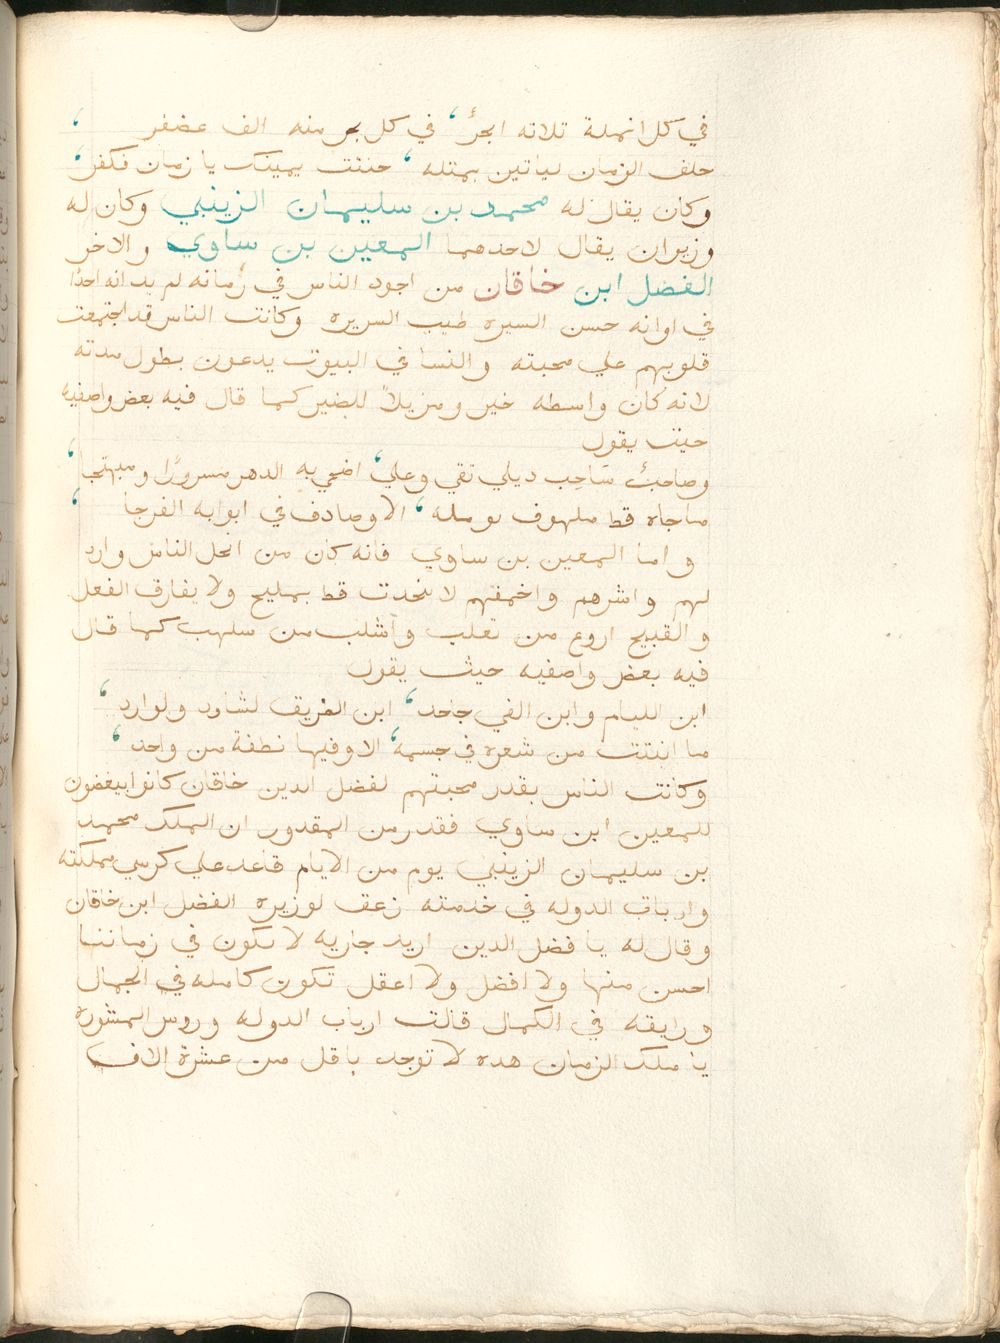 في كل انملة تلاته ابحرٌ، في كل بحر منه الف غضنفر،
حلف الزمان لياتين بمتله، حنتت يمينك يا زمان فكفر،
وكان يقال له محمد بن سليمان الزينبي وكان له
وزيران يقال لاحدهما المعين بن ساوي والاخر
الفضل ابن خاقان من اجود الناس في زمانه لم يدانه احدًا
في اوانه حسن السيره طيب السريره وكانت الناس قد اجتمعت
قلوبهم علي محبته والنسا في البيوت يدعون بطول مدته
لانه كان واسطه خير ومزيلاً للضير كما قال فيه بعض واصفيه
حيت يقول
وصاحبٌ سَاحِب ديلي تقي وعلي، اضحي به الدهر مسرورًا ومبتهجا،
ماجاه قط ملهوف يومله، الا وصادف في ابوابه الفرجا،
واما المعين بن ساوي فانه كان من ابخل الناس وارد
لهم واشرهم واخمقهم لا يتحدت قط بمليح ولا يفارق الفعل
و القبيح اروع من تعلب واشلب من سلهب كما قال
فيه بعض واصفيه حيث يقول
ابن الليام وابن الفي جاحد، ابن الطريق لشاود ولوارد،
ما انتتت من شعره في جسمه، الا وفيها نطفة من واحد،
وكانت الناس بقدر محبتهم لفضل الدين خاقان كانوا يبغضون
للمعين ابن ساوي فقدر من المقدور ان الملك محمد
بن سليمان الزينبي يوم من الايام قاعد علي كرسي مملكته
وارباب الدوله في خدمته زعق لوزيره الفضل ابن خاقان
وقال له يا فضل الدين اريد جاريه لا تكون في زماننا
احسن منها ولا افضل ولا اعقل تكون كامله في الجمال
ورايقه في الكمال قالت ارباب الدوله وروس المشوره
يا ملك الزمان هده لا توجد باقل من عشرة الاف